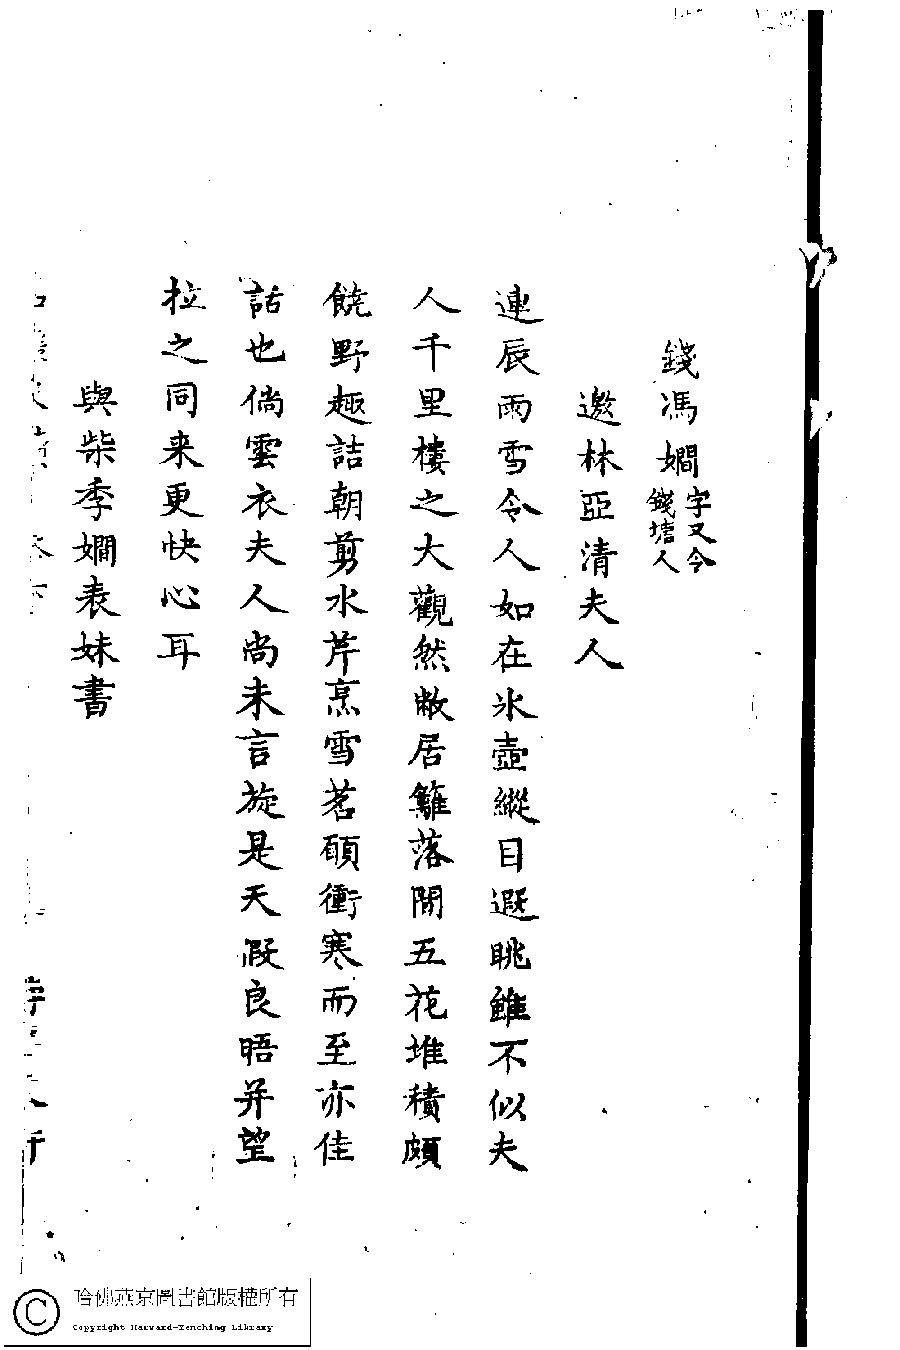 錢馮嫺字又令錢塘人
邀林亞清夫人
連辰雨雪令人如在氷壺縱目遐眺雖不似夫
人千里樓之大觀然敝居籬落間五花堆積頗
饒野趣詰朝剪水芹烹雪茗願衝寒而至亦佳
話也倘雲衣夫人尚未言旋是天假良晤并望
拉之同来更快心耳
與柴季嫺表妹書
哈佛燕京圖書館版權所有
Copyright Harvard-Yenching Library